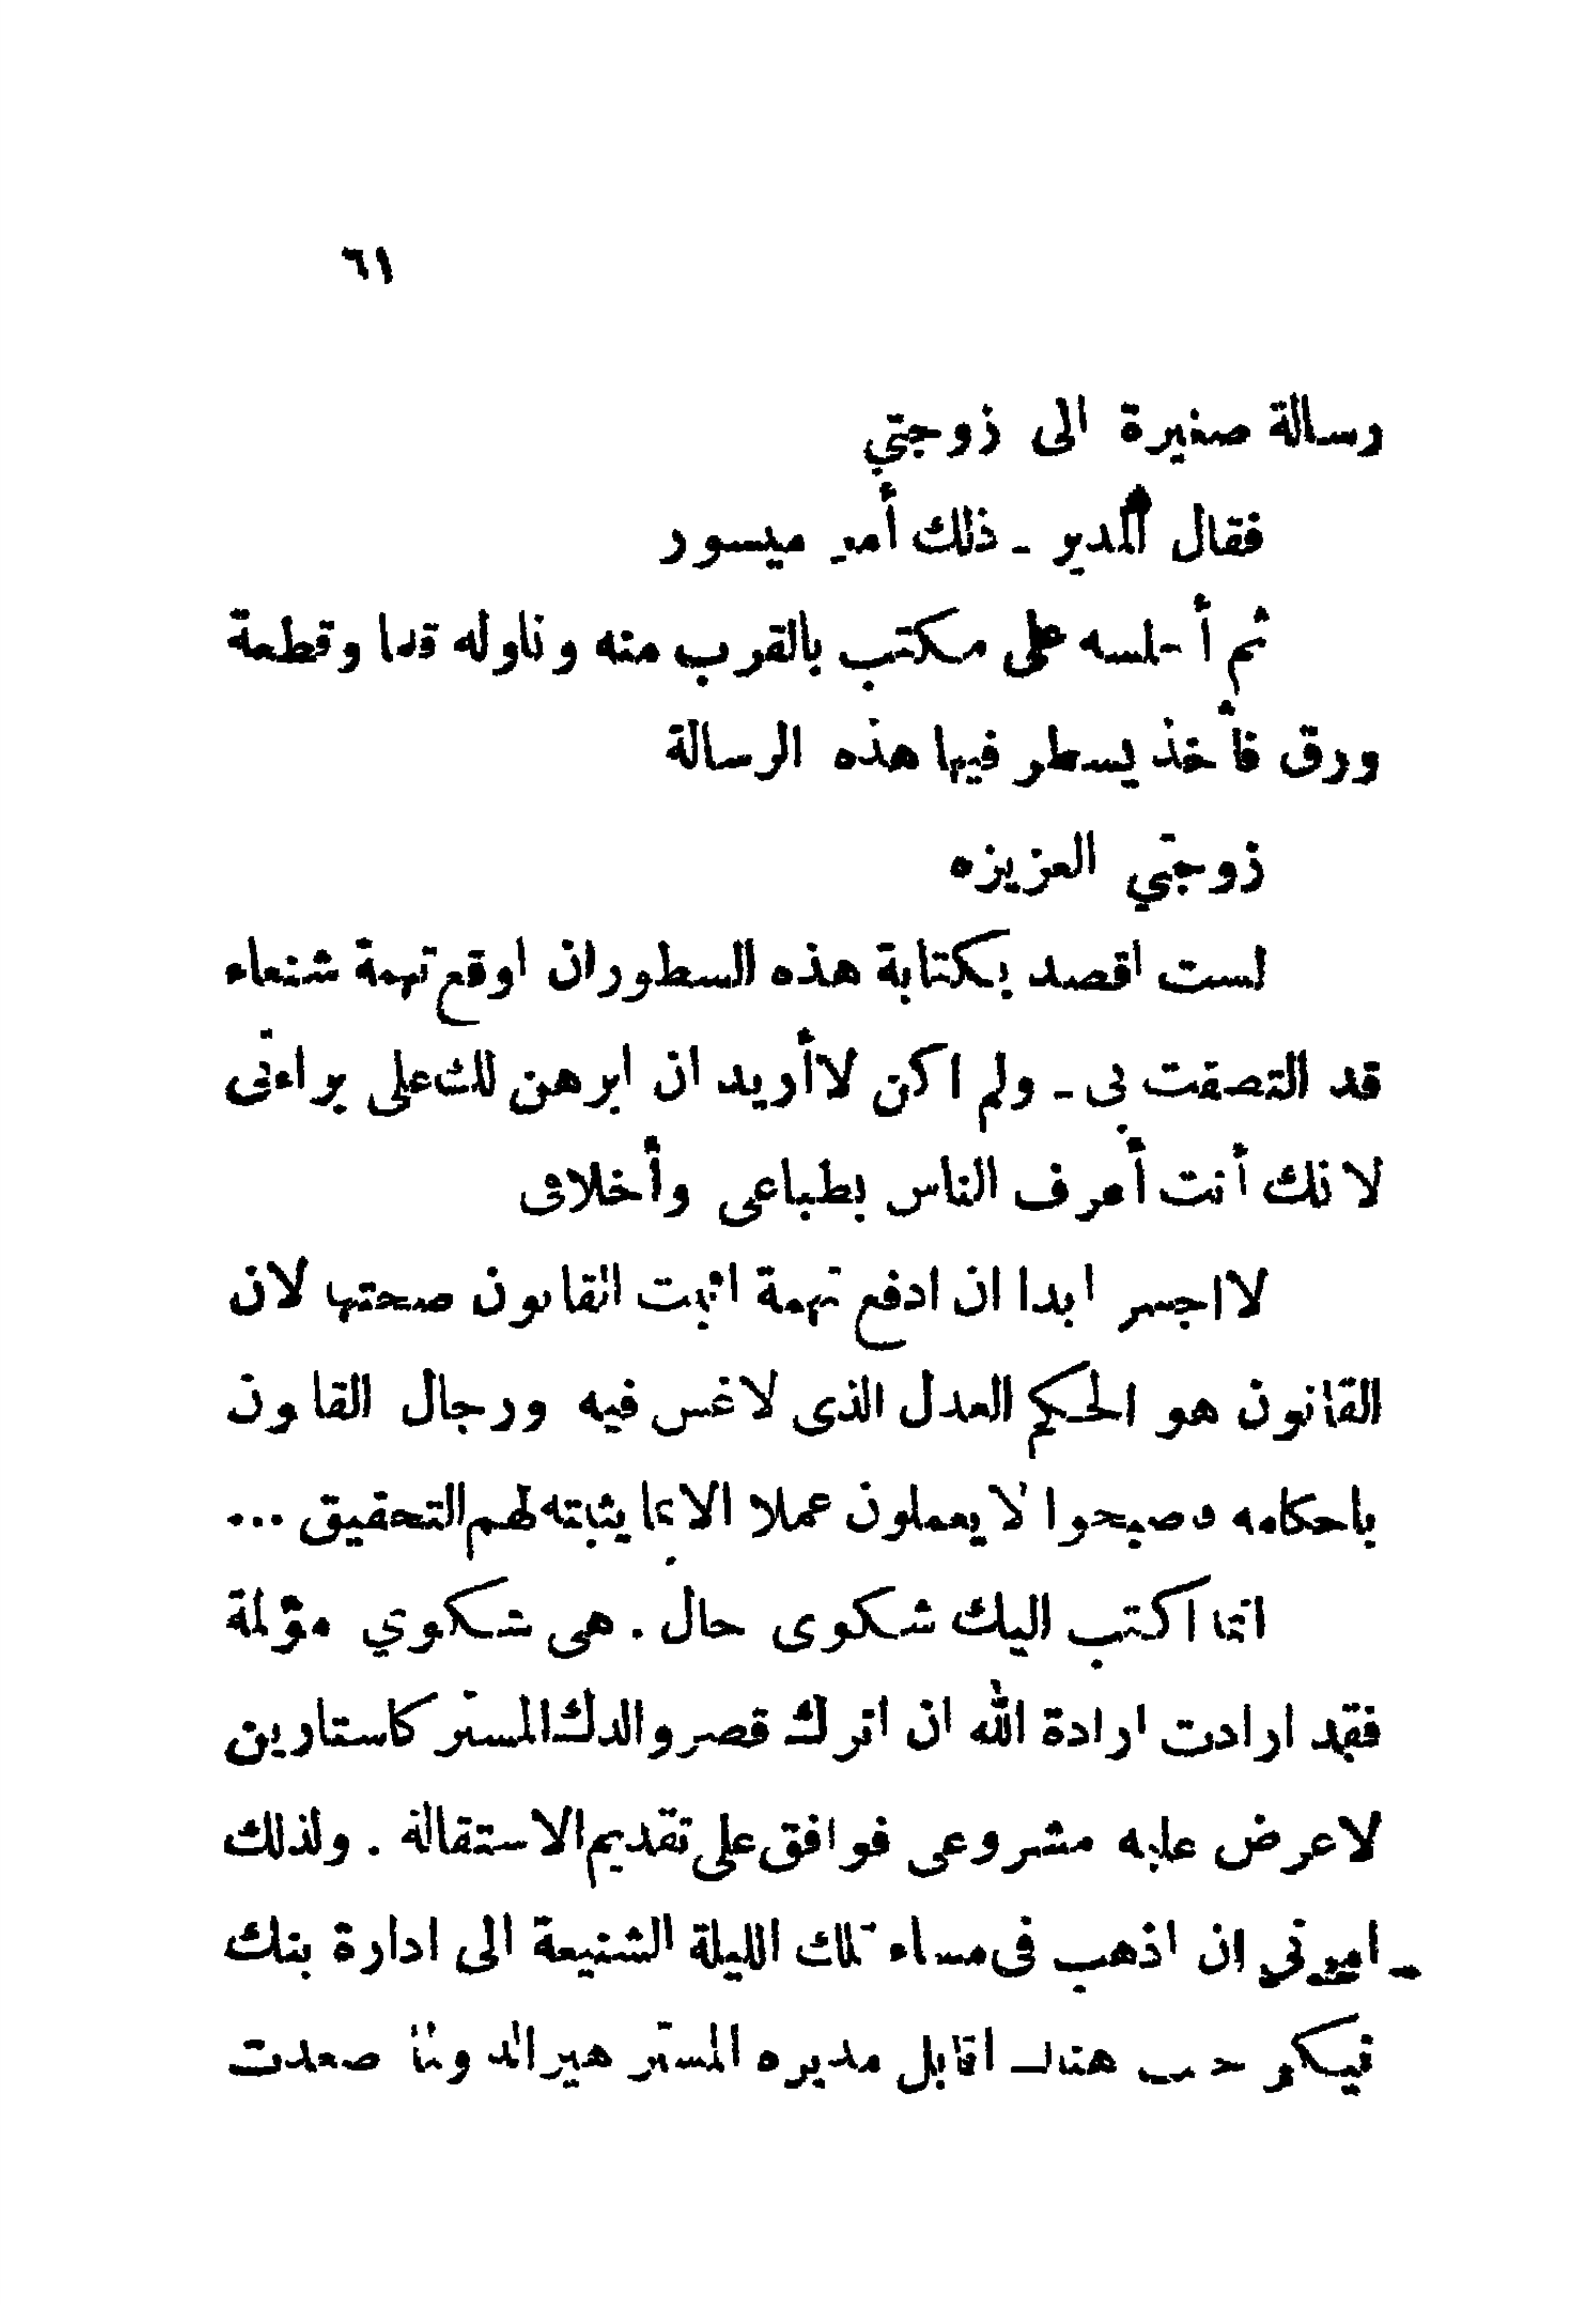 ٦١
رسالة صغيرة الى زوجتي
فقال المدير ـ ذلك أمر ميسور
ثم أجلسه على مكتب بالقرب منه وناوله قلما وقطعة
ورق فأخذ يسطر فيها هذه الرسالة
زوجتي العزيزه
لست اقصد بكتابة هذه السطور ان اوقع تهمة شنعاء
قد التصقت بى ـ ولم اكن لا أريد ان ابرهن لك على براءتى
لانك أنت أعرف الناس بطباعى وأخلاقى
لا اجسر ابدا ان ادفع تهمة اثبت القانون صحتها لان
القانون هو الحكم العدل الذى لا غس فيه ورجال القانون
باحكامه اصبحوا لا يعملون عملا الا بما يثبته لهم التحقيق ...
انما اكتب اليك شكوى حال . هى شكوي مؤلمة
فقد ارادت ارادة الله ان اترك قصر والدك المستر كاستارين
لاعرض عليه مشروعى فوافق على تقديم الاستقالة . ولذلك
امرنى ان اذهب فى مساء تلك الليلة الشنيعة الى ادارة بنك
هناك اقابل مديره المستر هيرالد ولما صعدت